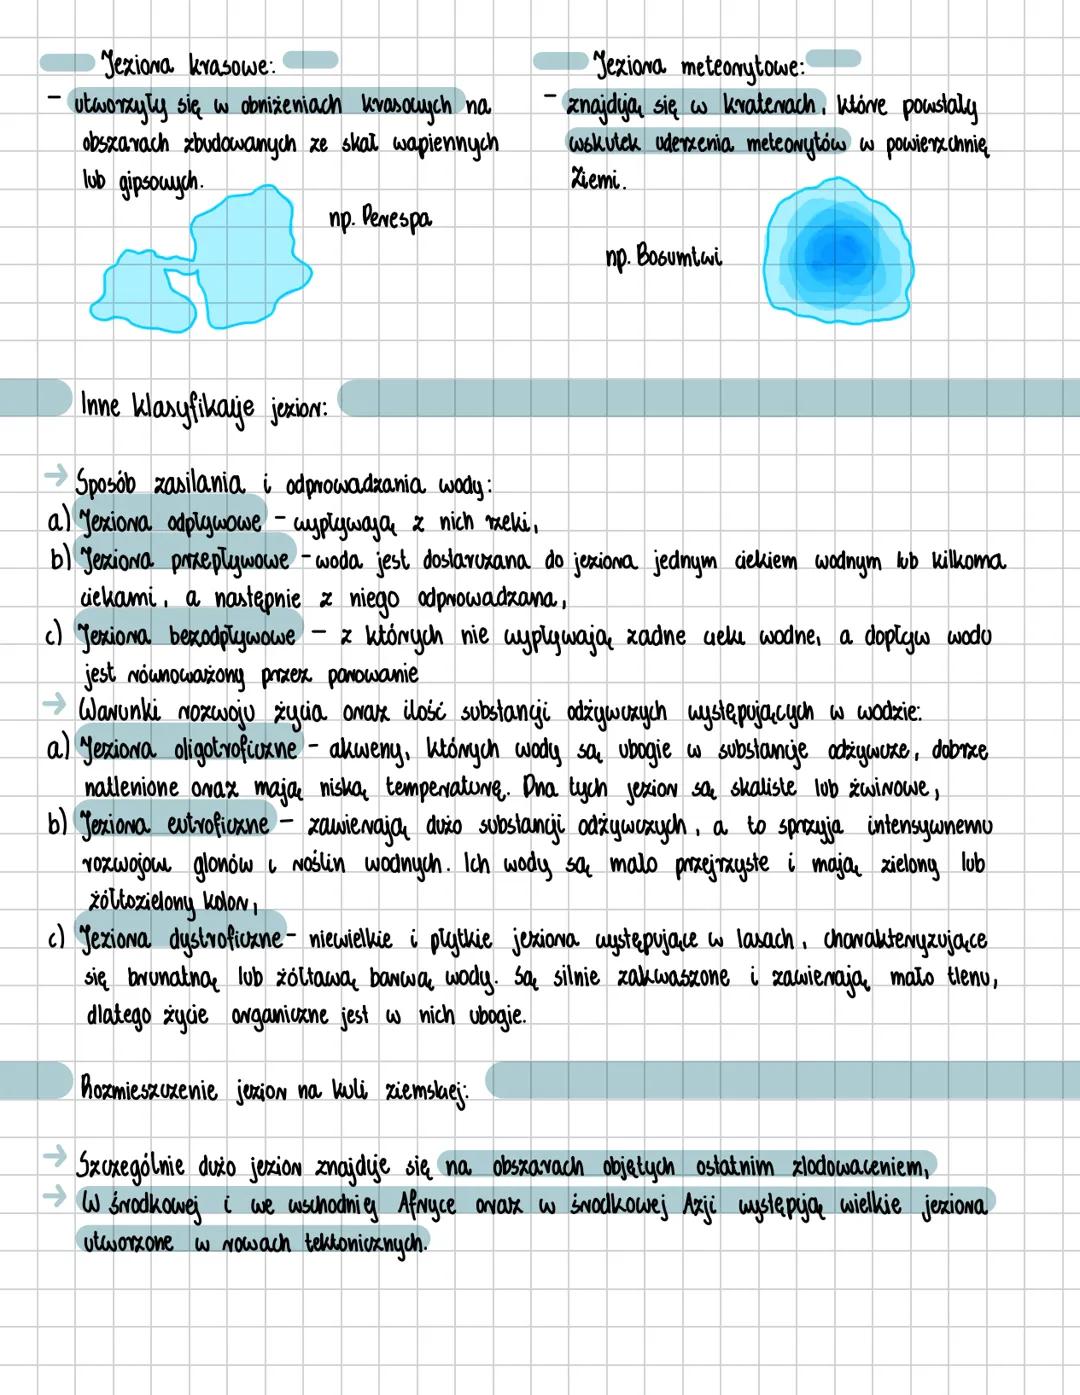 Jeziora krasowe:
- utworzyły się w obniżeniach krasowych na
obszarach zbudowanych ze skał wapiennych
lub gipsowych.
np. Perespa
Jeziora meteorytowe:
- znajdują się w kraterach, które powstały
wskutek uderzenia meteorytów w powierzchnię
Ziemi.
np. Bosumtwi
Inne klasyfikacje jezior:
→ Sposób zasilania i odprowadzania wody:
a) Jeziora odpływowe - wypływają z nich rzeki,
b) Jeziora przepływowe - woda jest dostarczana do jeziora jednym ciekiem wodnym lub kilkoma
ciekami, a następnie z niego odprowadzana,
c) Jeziora bezodpływowe - z których nie wypływają żadne cieki wodne, a dopływ wody
jest równoważony przez parowanie
→ Warunki rozwoju życia oraz ilość substancji odżywczych występujących w wodzie:
a) Jeziora oligotroficzne - akweny, których wody są ubogie w substancje odżywcze, dobrze
natlenione oraz mają niską temperaturę. Dna tych jezior są skaliste lub żwirowe,
b) Jeziora eutroficzne - zawierają dużo substancji odżywczych, a to sprzyja intensywnemu
rozwojowi glonów i roślin wodnych. Ich wody są mało przejrzyste i mają zielony lub
żółtozielony kolor,
c) Jeziora dystroficzne - niewielkie i płytkie jeziora występujące w lasach, charakteryzujące
się brunatną lub żółtawą barwą wody. Są silnie zakwaszone i zawierają mało tlenu,
dlatego życie organiczne jest w nich ubogie.
Rozmieszczenie jezior na kuli ziemskiej:
→ Szczególnie dużo jezior znajduje się na obszarach objętych ostatnim zlodowaceniem,
→ W środkowej i we wschodniej Afryce oraz w środkowej Azji występują wielkie jeziora
utworzone w rowach tektonicznych.